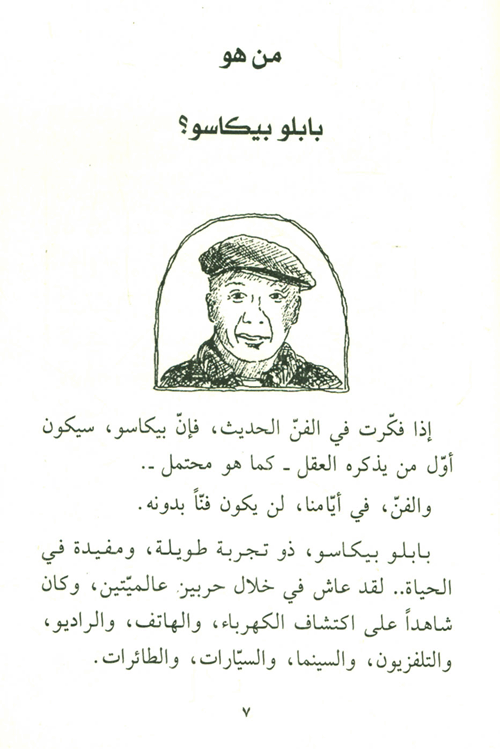 من هو
بابلو بيكاسو؟
إذا فكّرت في الفنّ الحديث، فإنّ بيكاسو، سيكون
أوّل من يذكره العقل ـ كما هو محتمل ـ.
والفنّ، في أيّامنا، لن يكون فنّاً بدونه.
بابلو بيكاسو، ذو تجربة طويلة، ومفيدة في
الحياة.. لقد عاش في خلال حربين عالميّتين، وكان
شاهداً على اكتشاف الكهرباء، والهاتف، والراديو،
والتلفزيون، والسينما، والسيّارات، والطائرات.
٧